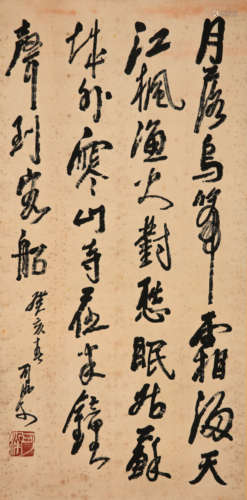 月落烏啼霜滿天
江楓漁火對愁眠姑蘇
城外寒山寺夜半鐘
聲到客船
癸亥春